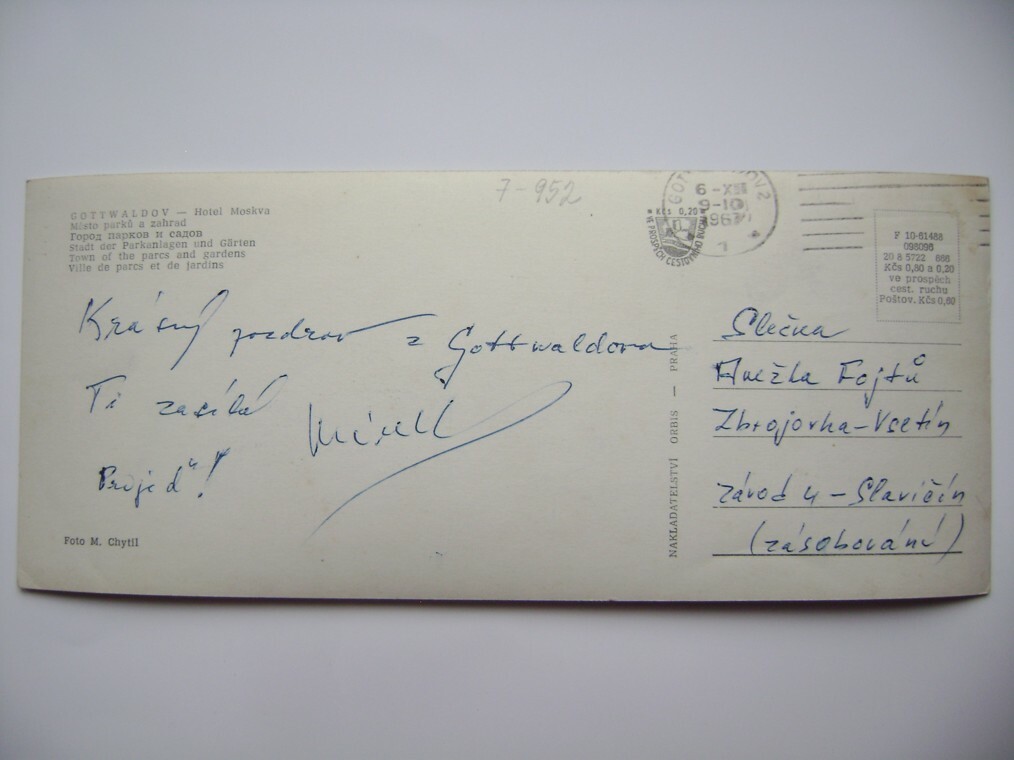 7-952
GOTTWALDOV — Hotel Moskva
Město parků a zahrad
Город парков и садов
Stadt der Parkanlagen und Gärten
Town of the parcs and gardens
Ville de parcs et de jardins
Krásný pozdrav z Gottwaldova
Ti zasílá
Přijeď!
Foto M. Chytil
NAKLADATELSTVÍ ORBIS — PRAHA
6-XII
9-10
Kčs 0,20
VE PROSPĚCH CESTOVNÍHO RUCHU
F 10-61488
098096
20 8 5722 866
Kčs 0,80 a 0,20
ve prospěch
cest. ruchu
Poštov. Kčs 0,60
Slečna
Anežka Fojtů
Zbrojovka-Vsetín
závod 4 - Slavičín
(zásobování)